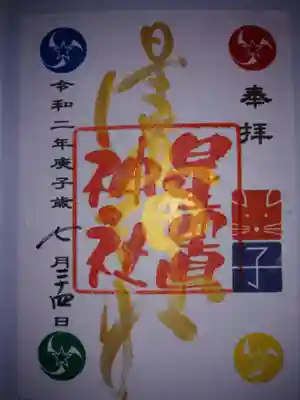 奉拝
子
星置
神社
令和二年庚子歳七月二十四日